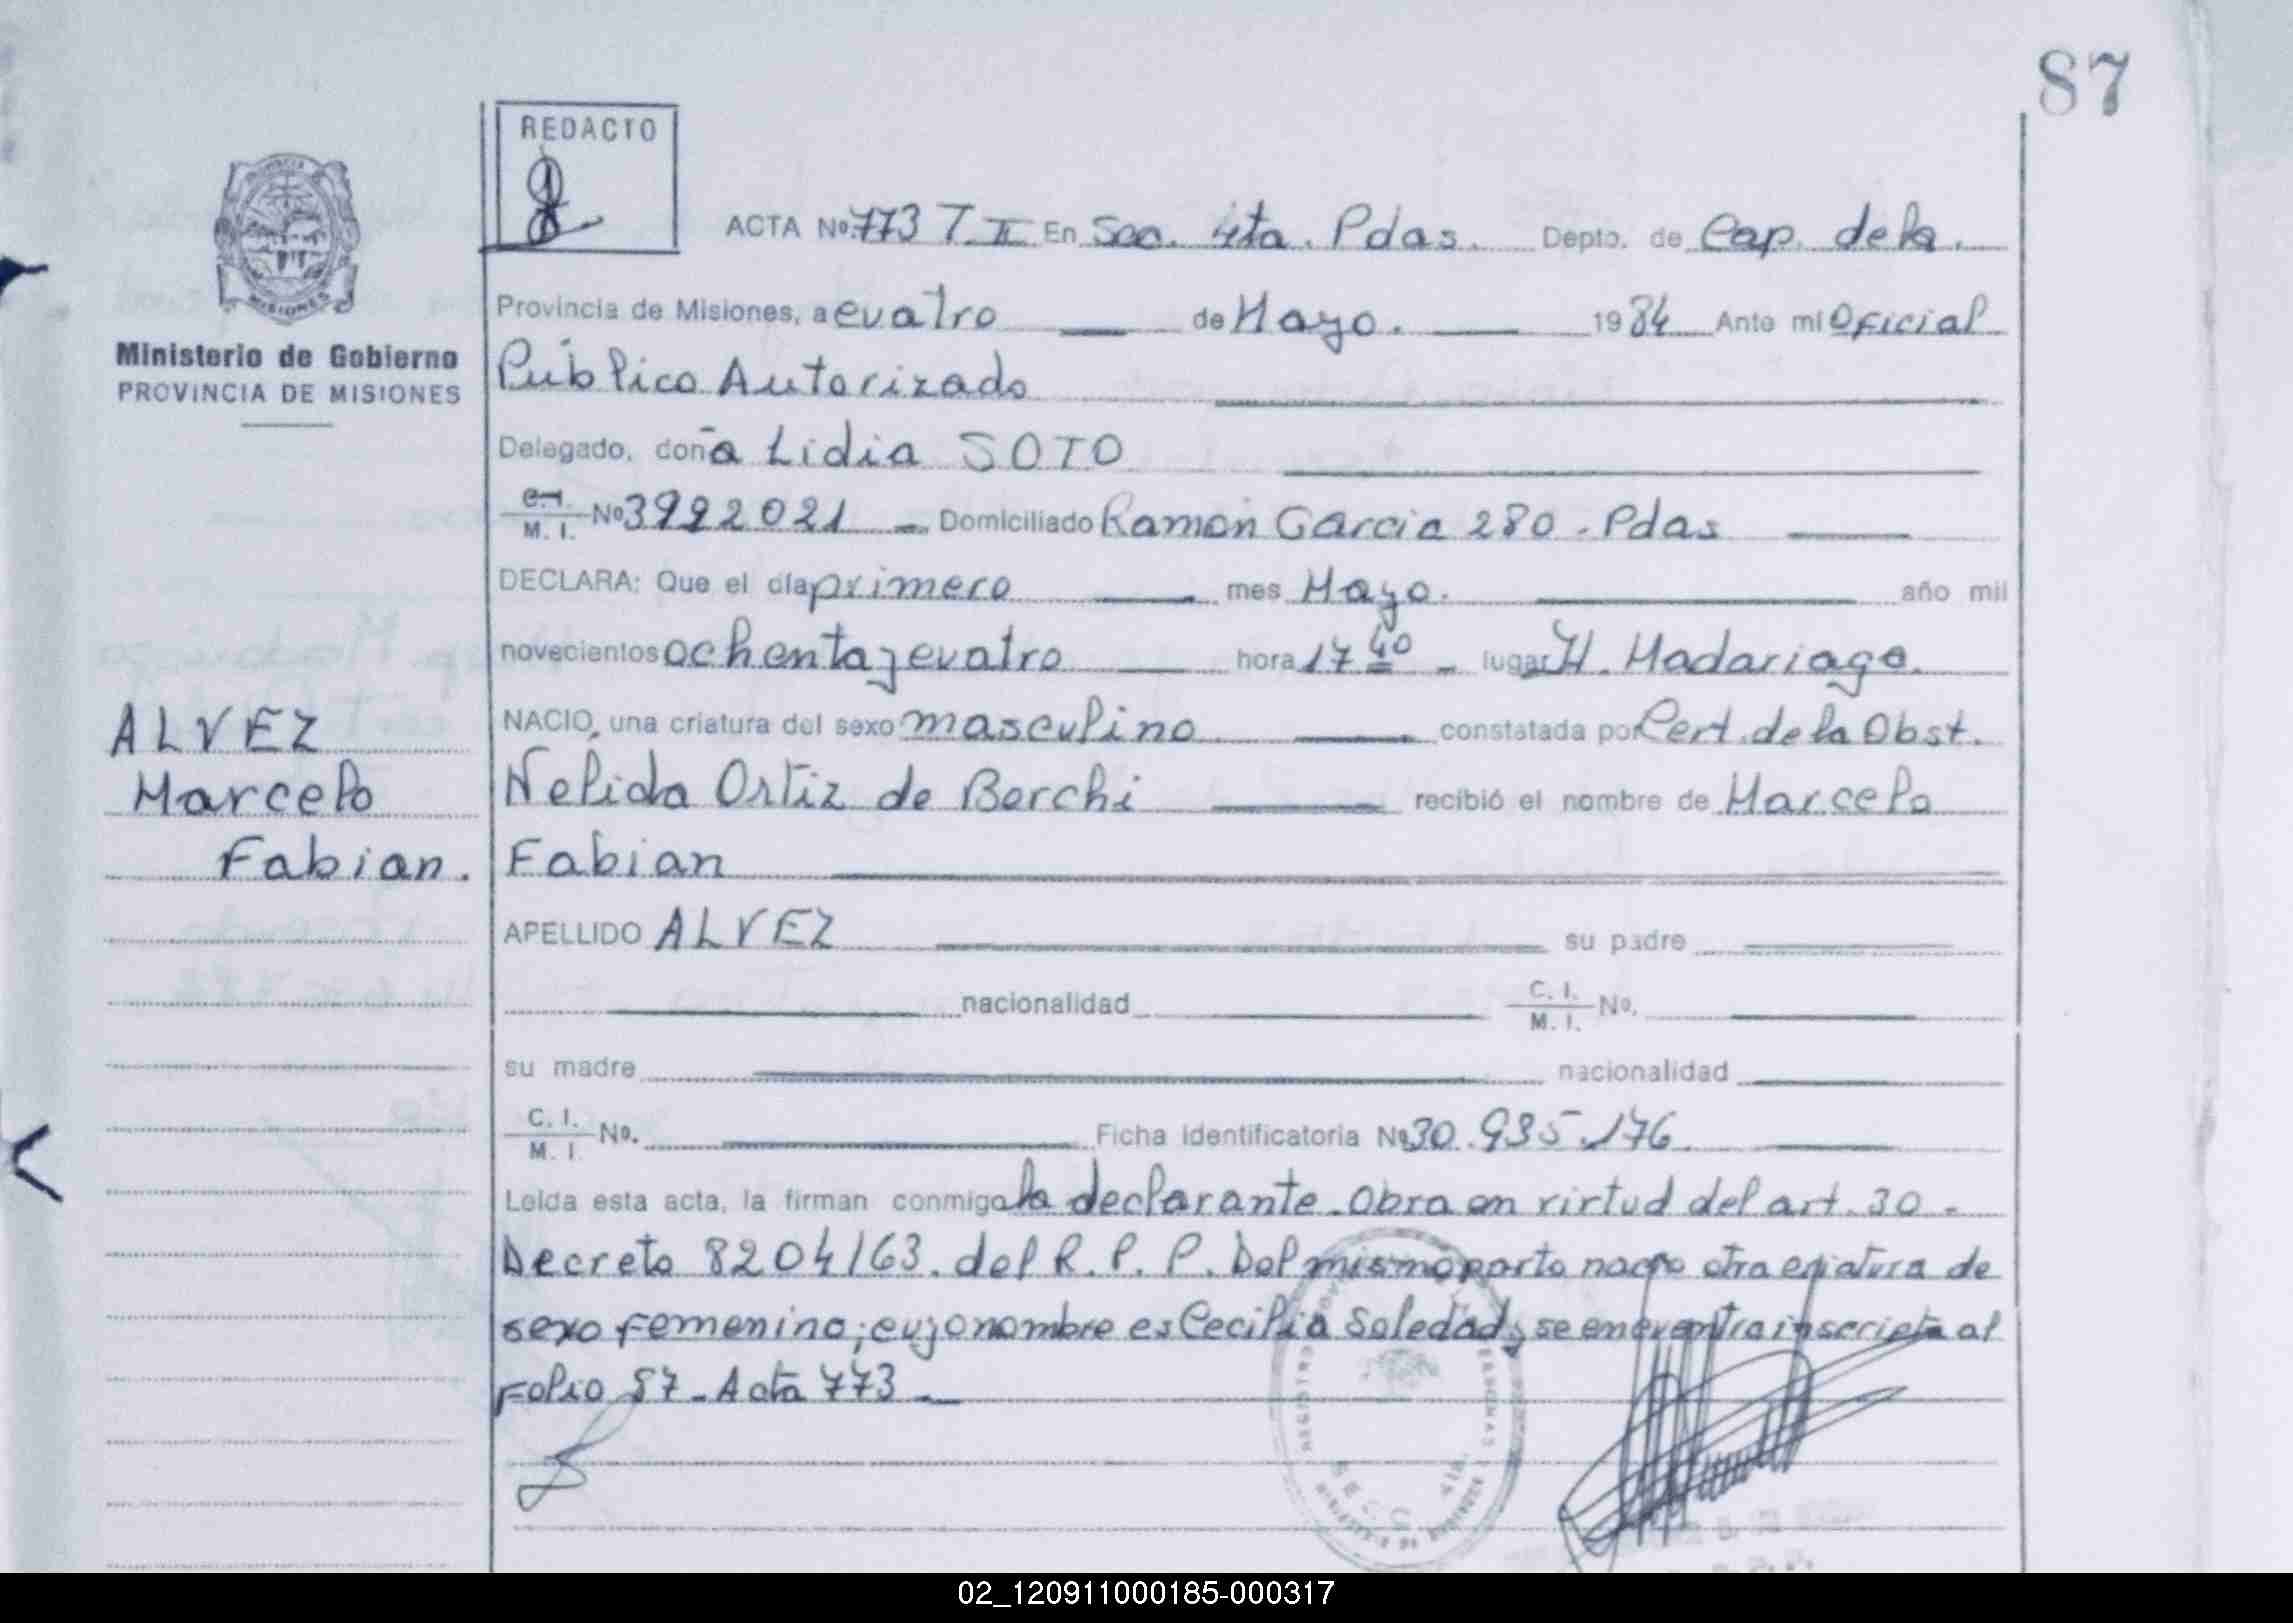 87
REDACTO
ACTA Nº 773 T. II En Sec. 4ta. Pdas. Depto. de Cap. de la.
Provincia de Misiones, a cuatro de Mayo. 1984 Ante mi Oficial
Público Autorizado
Delegado, doña Lidia SOTO
C.I. M. I. Nº 3992021 - Domiciliado Ramón Garcia 280 - Pdas
DECLARA: Que el día primero mes Mayo. año mil
novecientos ochenta y cuatro hora 17 40 - lugar H. Madariaga.
NACIO, una criatura del sexo masculino constatada por Cert. de la Obst.
Nelida Ortiz de Berchi recibió el nombre de Marcelo
Fabian
APELLIDO ALVEZ su padre
nacionalidad C. I. M. I. Nº.
su madre nacionalidad
C. I. M. I. Nº. Ficha Identificatoria Nº 30.935.176.
Leída esta acta, la firman conmigo la declarante. Obra en virtud del art. 30 -
Decreto 8204/63. del R. P. P. Del mismo parto nacio otra criatura de
sexo femenino; cuyo nombre es Cecilia Soledad, se encuentra inscripta al
Folio 87 - Acta 773 -
MISIONES
Ministerio de Gobierno
PROVINCIA DE MISIONES
ALVEZ
Marcelo
Fabian.
02_120911000185-000317